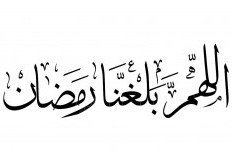 اللهمَّ بَلِّغْنَا رمَضَان